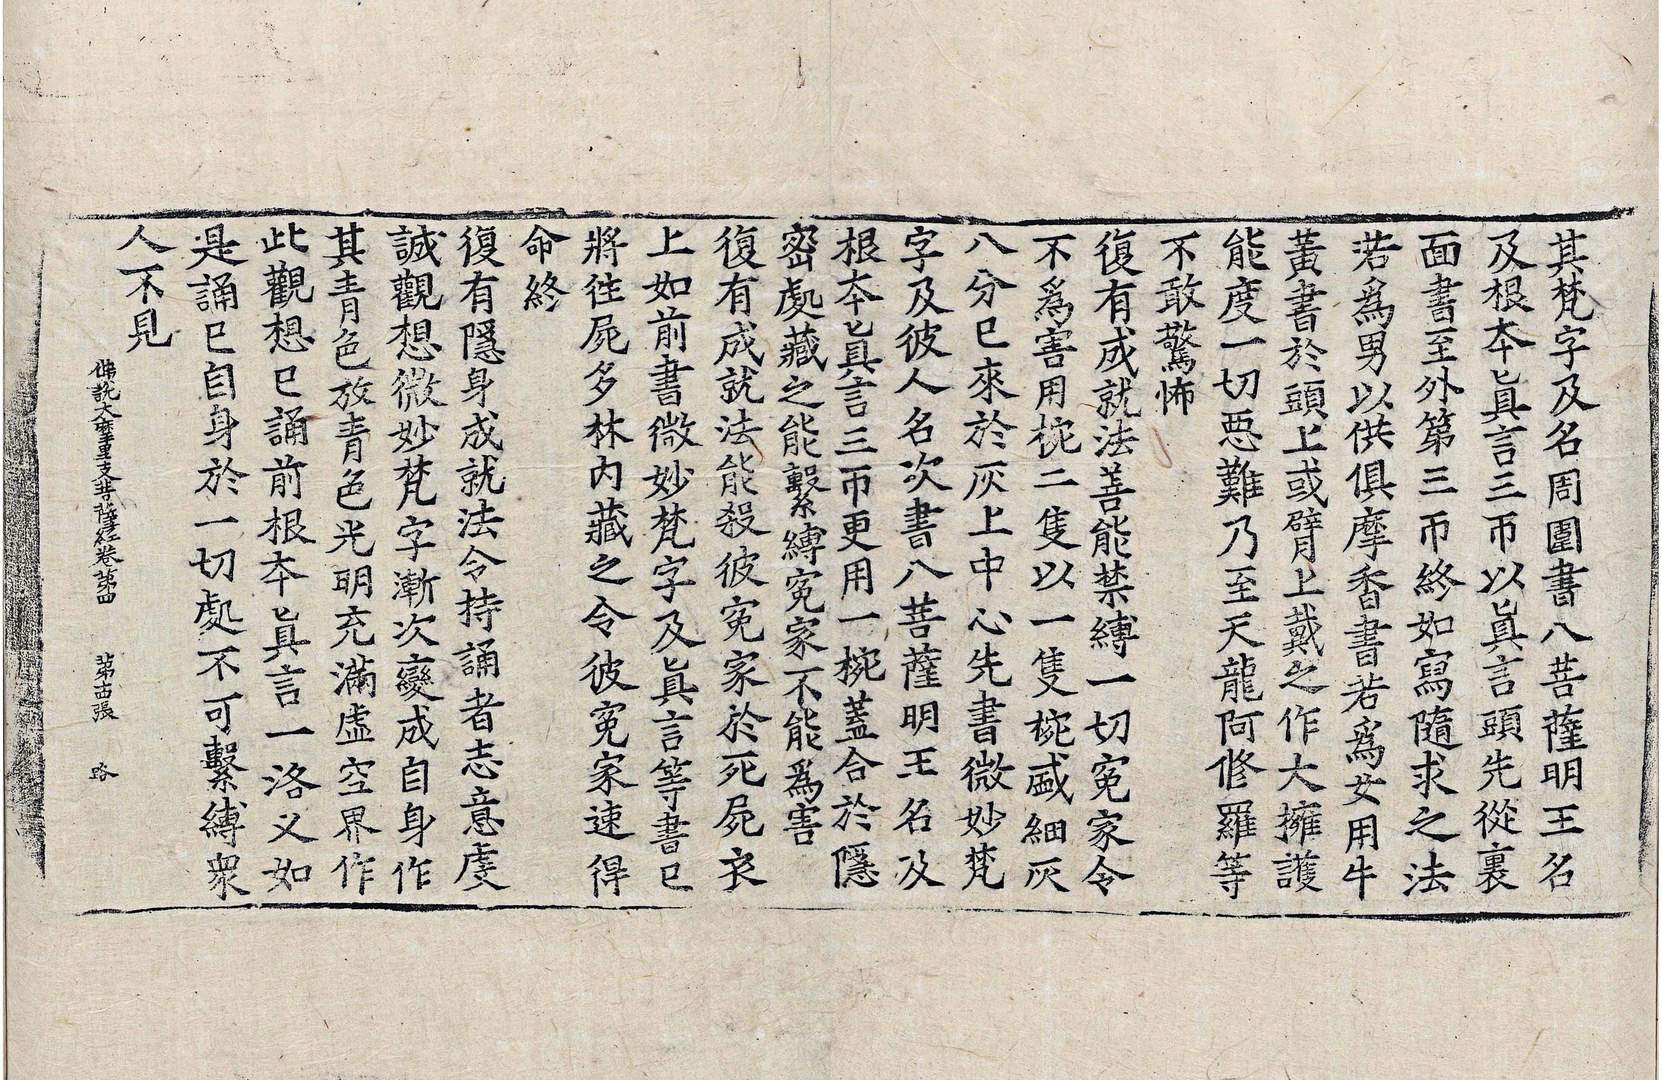 其梵字及名周圍書八菩薩明王名
及根本真言三帀以真言頭先從裏
面書至外第三帀終如寫隨求之法
若爲男以供俱摩香書若爲女用牛
黃書於頭上或臂上戴之作大擁護
能度一切惡難乃至天龍阿修羅等
不敢驚怖
復有成就法善能禁縛一切冤家令
不爲害用椀二隻以一隻椀盛細灰
八分已來於灰上中心先書微妙梵
字及彼人名次書八菩薩明王名及
根本真言三帀更用一椀蓋合於隱
密處藏之能繫縛冤家不能爲害
復有成就法能殺彼冤家於死屍衣
上如前書微妙梵字及真言等書已
將往屍多林內藏之令彼冤家速得
命終
復有隱身成就法令持誦者志意虔
誠觀想微妙梵字漸次變成自身作
其青色放青色光明充滿虛空界作
此觀想已誦前根本真言一洛叉如
是誦已自身於一切處不可繫縛衆
人不見
佛說大摩里支菩薩經卷第四 第十四張 路